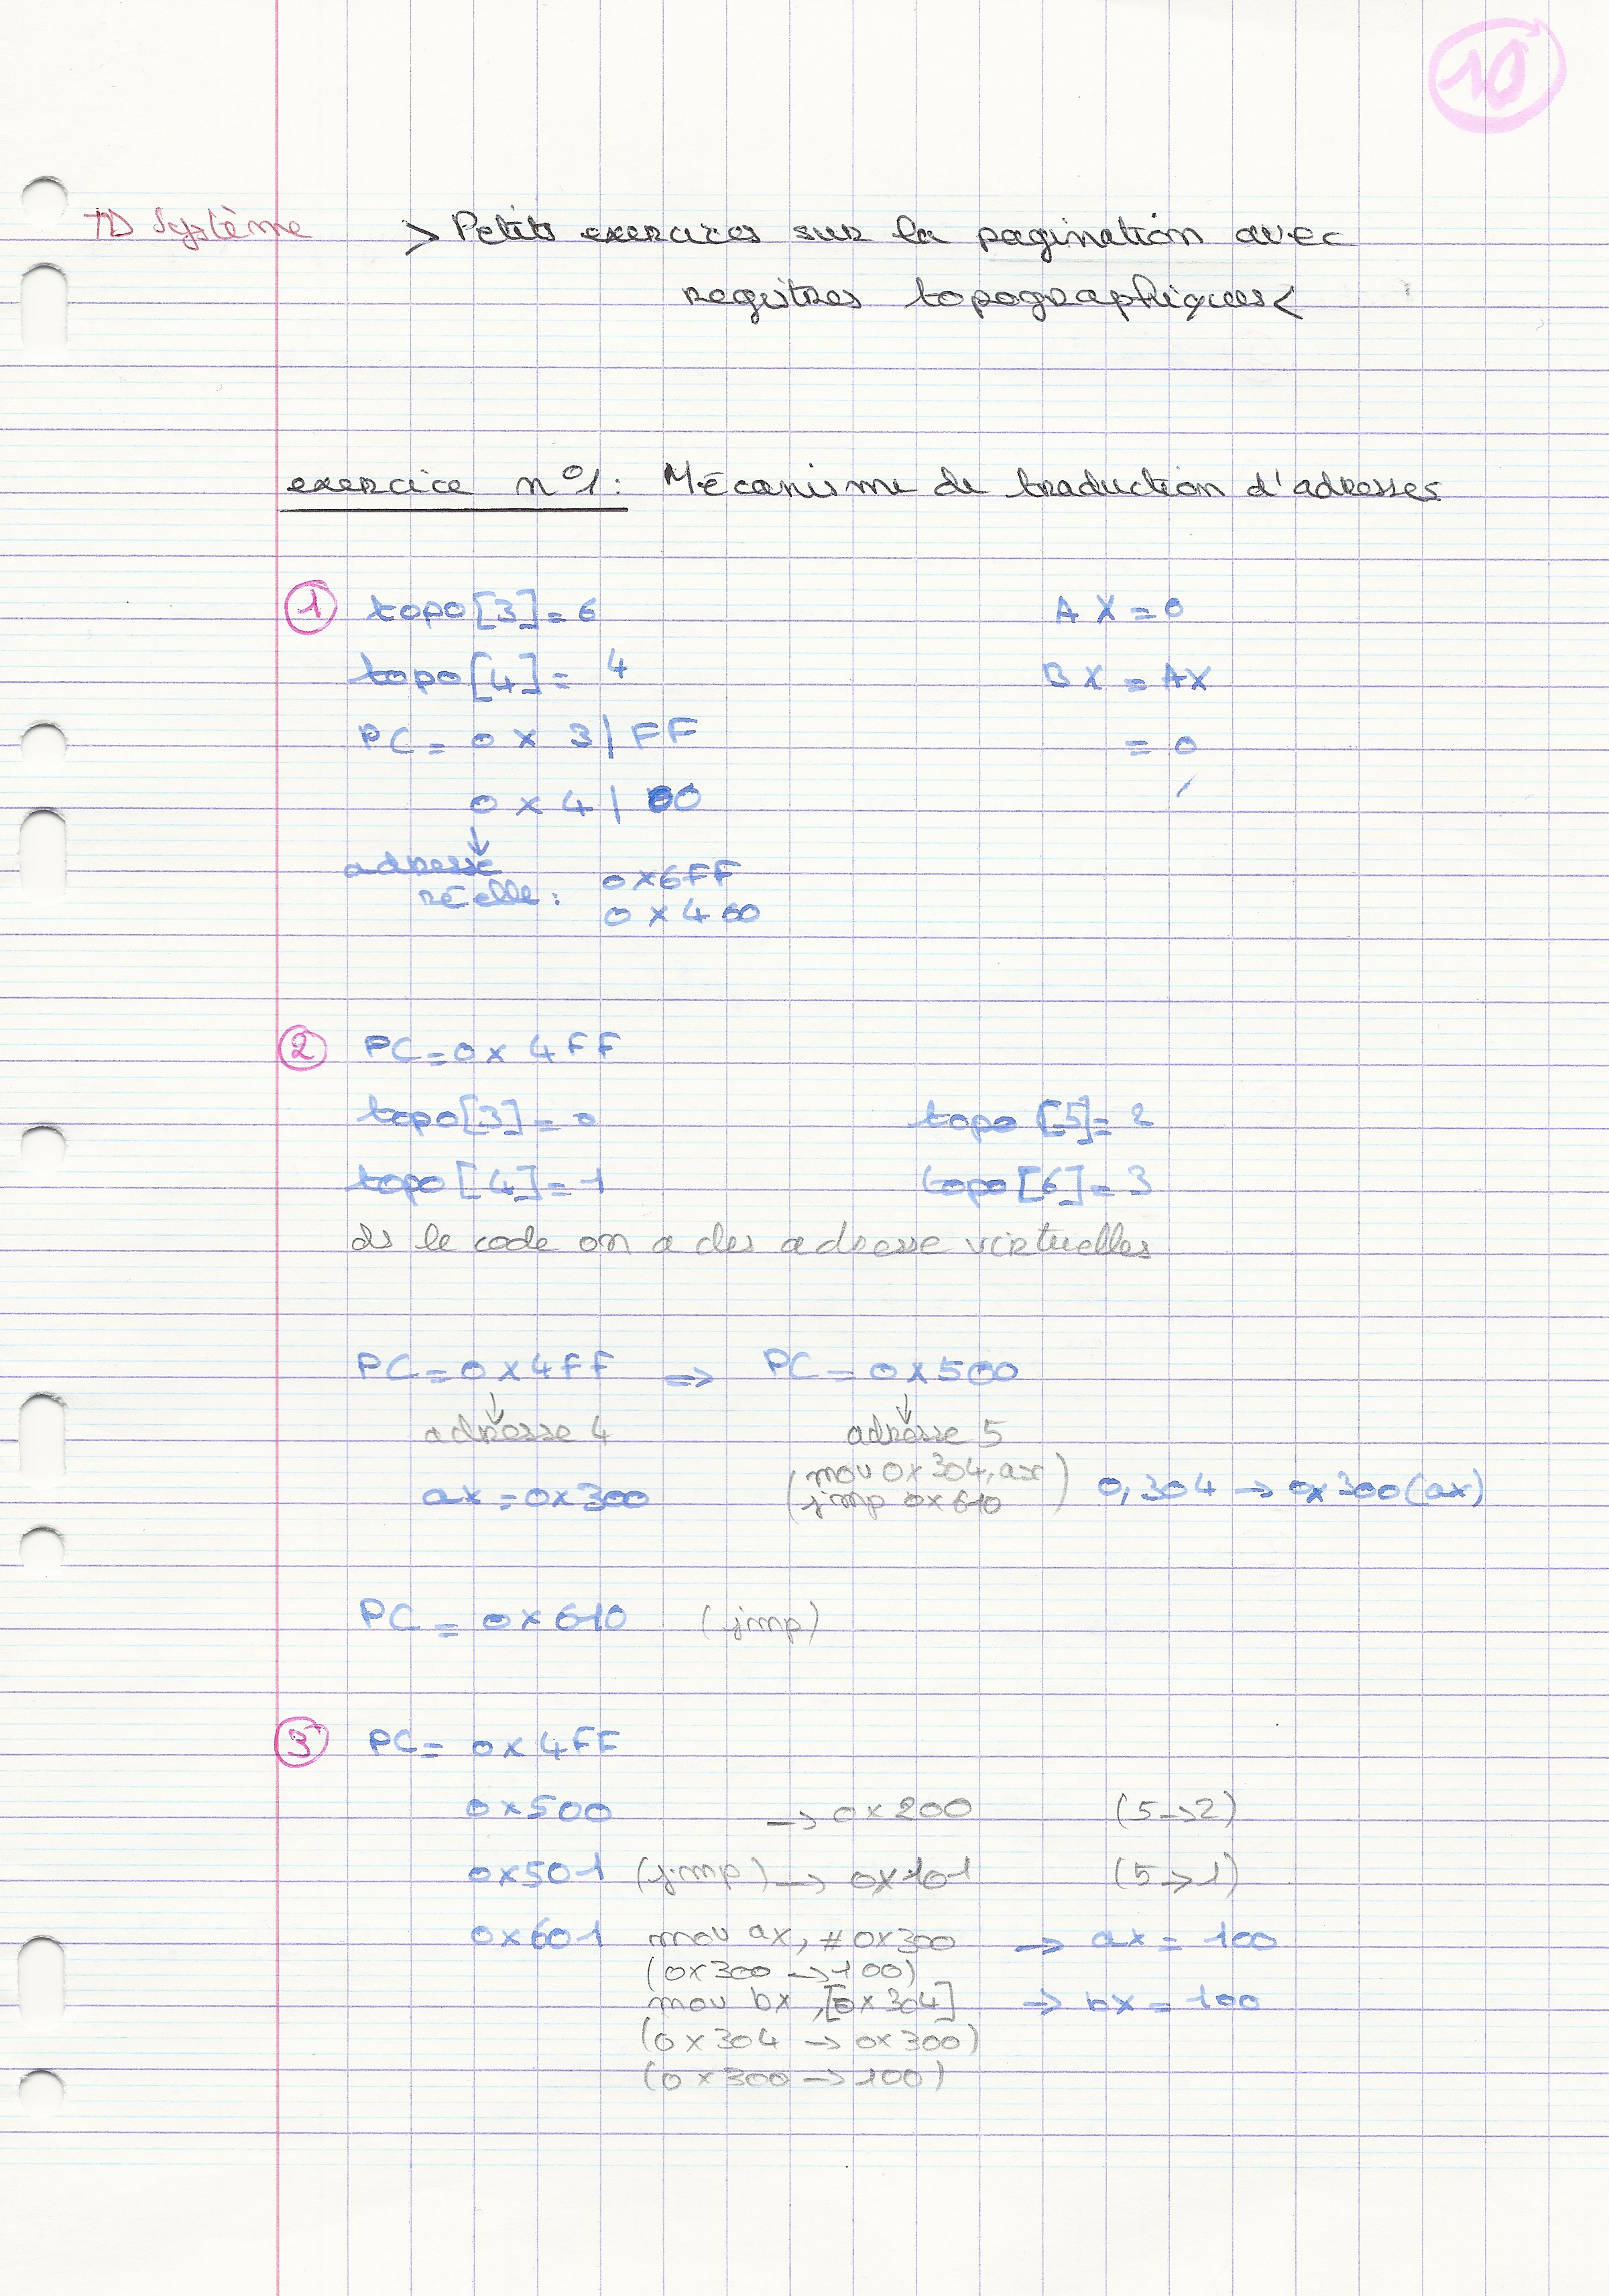 10
TD Système
> Petits exercices sur la pagination avec
registres topographiques <
exercice n°1 : Mécanisme de traduction d'adresses
1 topo[3] = 6 AX = 0
topo[4] = 4 BX = AX
PC = 0x 3 | FF = 0
0x 4 | 00
↓
adresse
réelle : 0x6FF
0x400
2 PC = 0x 4FF
topo[3] = 0 topo[5] = 2
topo[4] = 1 topo[6] = 3
ds le code on a des adresse virtuelles
PC = 0x4FF => PC = 0x500
↓ ↓
adresse 4 adresse 5
ax = 0x300 (mov 0x304, ax
jmp 0x610) 0,304 → 0x300 (ax)
PC = 0x610 (jmp)
3 PC = 0x4FF
0x500 → 0x200 (5→2)
0x501 (jmp) → 0x101 (5→1)
0x601 mov ax, #0x300 → ax = 100
(0x300 → 100)
mov bx, [0x304] → bx = 100
(0x304 → 0x300)
(0x300 → 100)